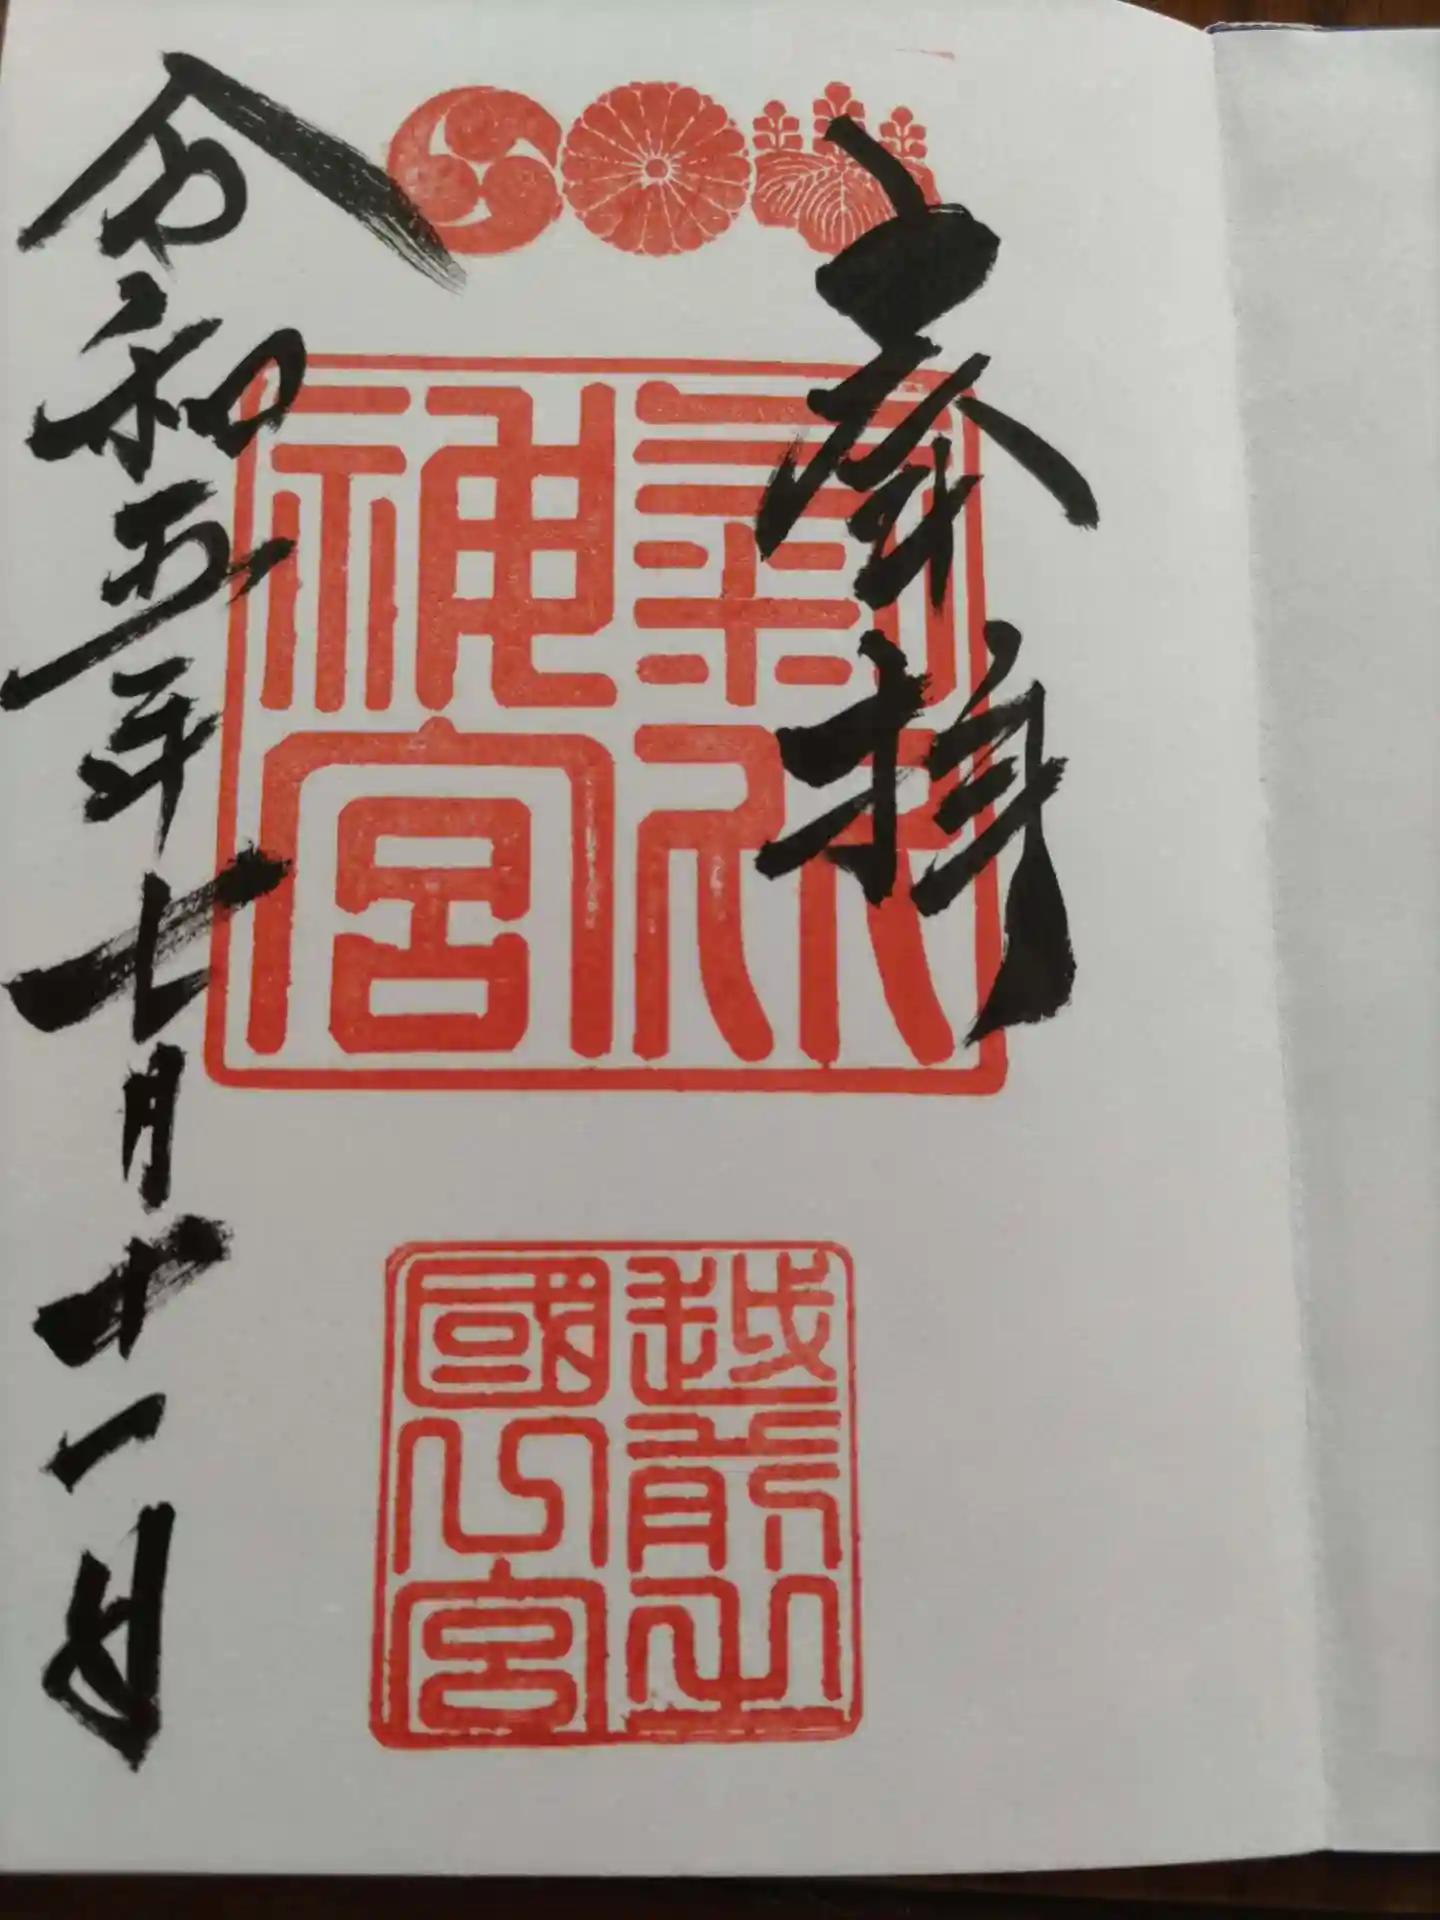 奉拝
氣比
神宮
越前一
國一宮
令和五年七月十一日